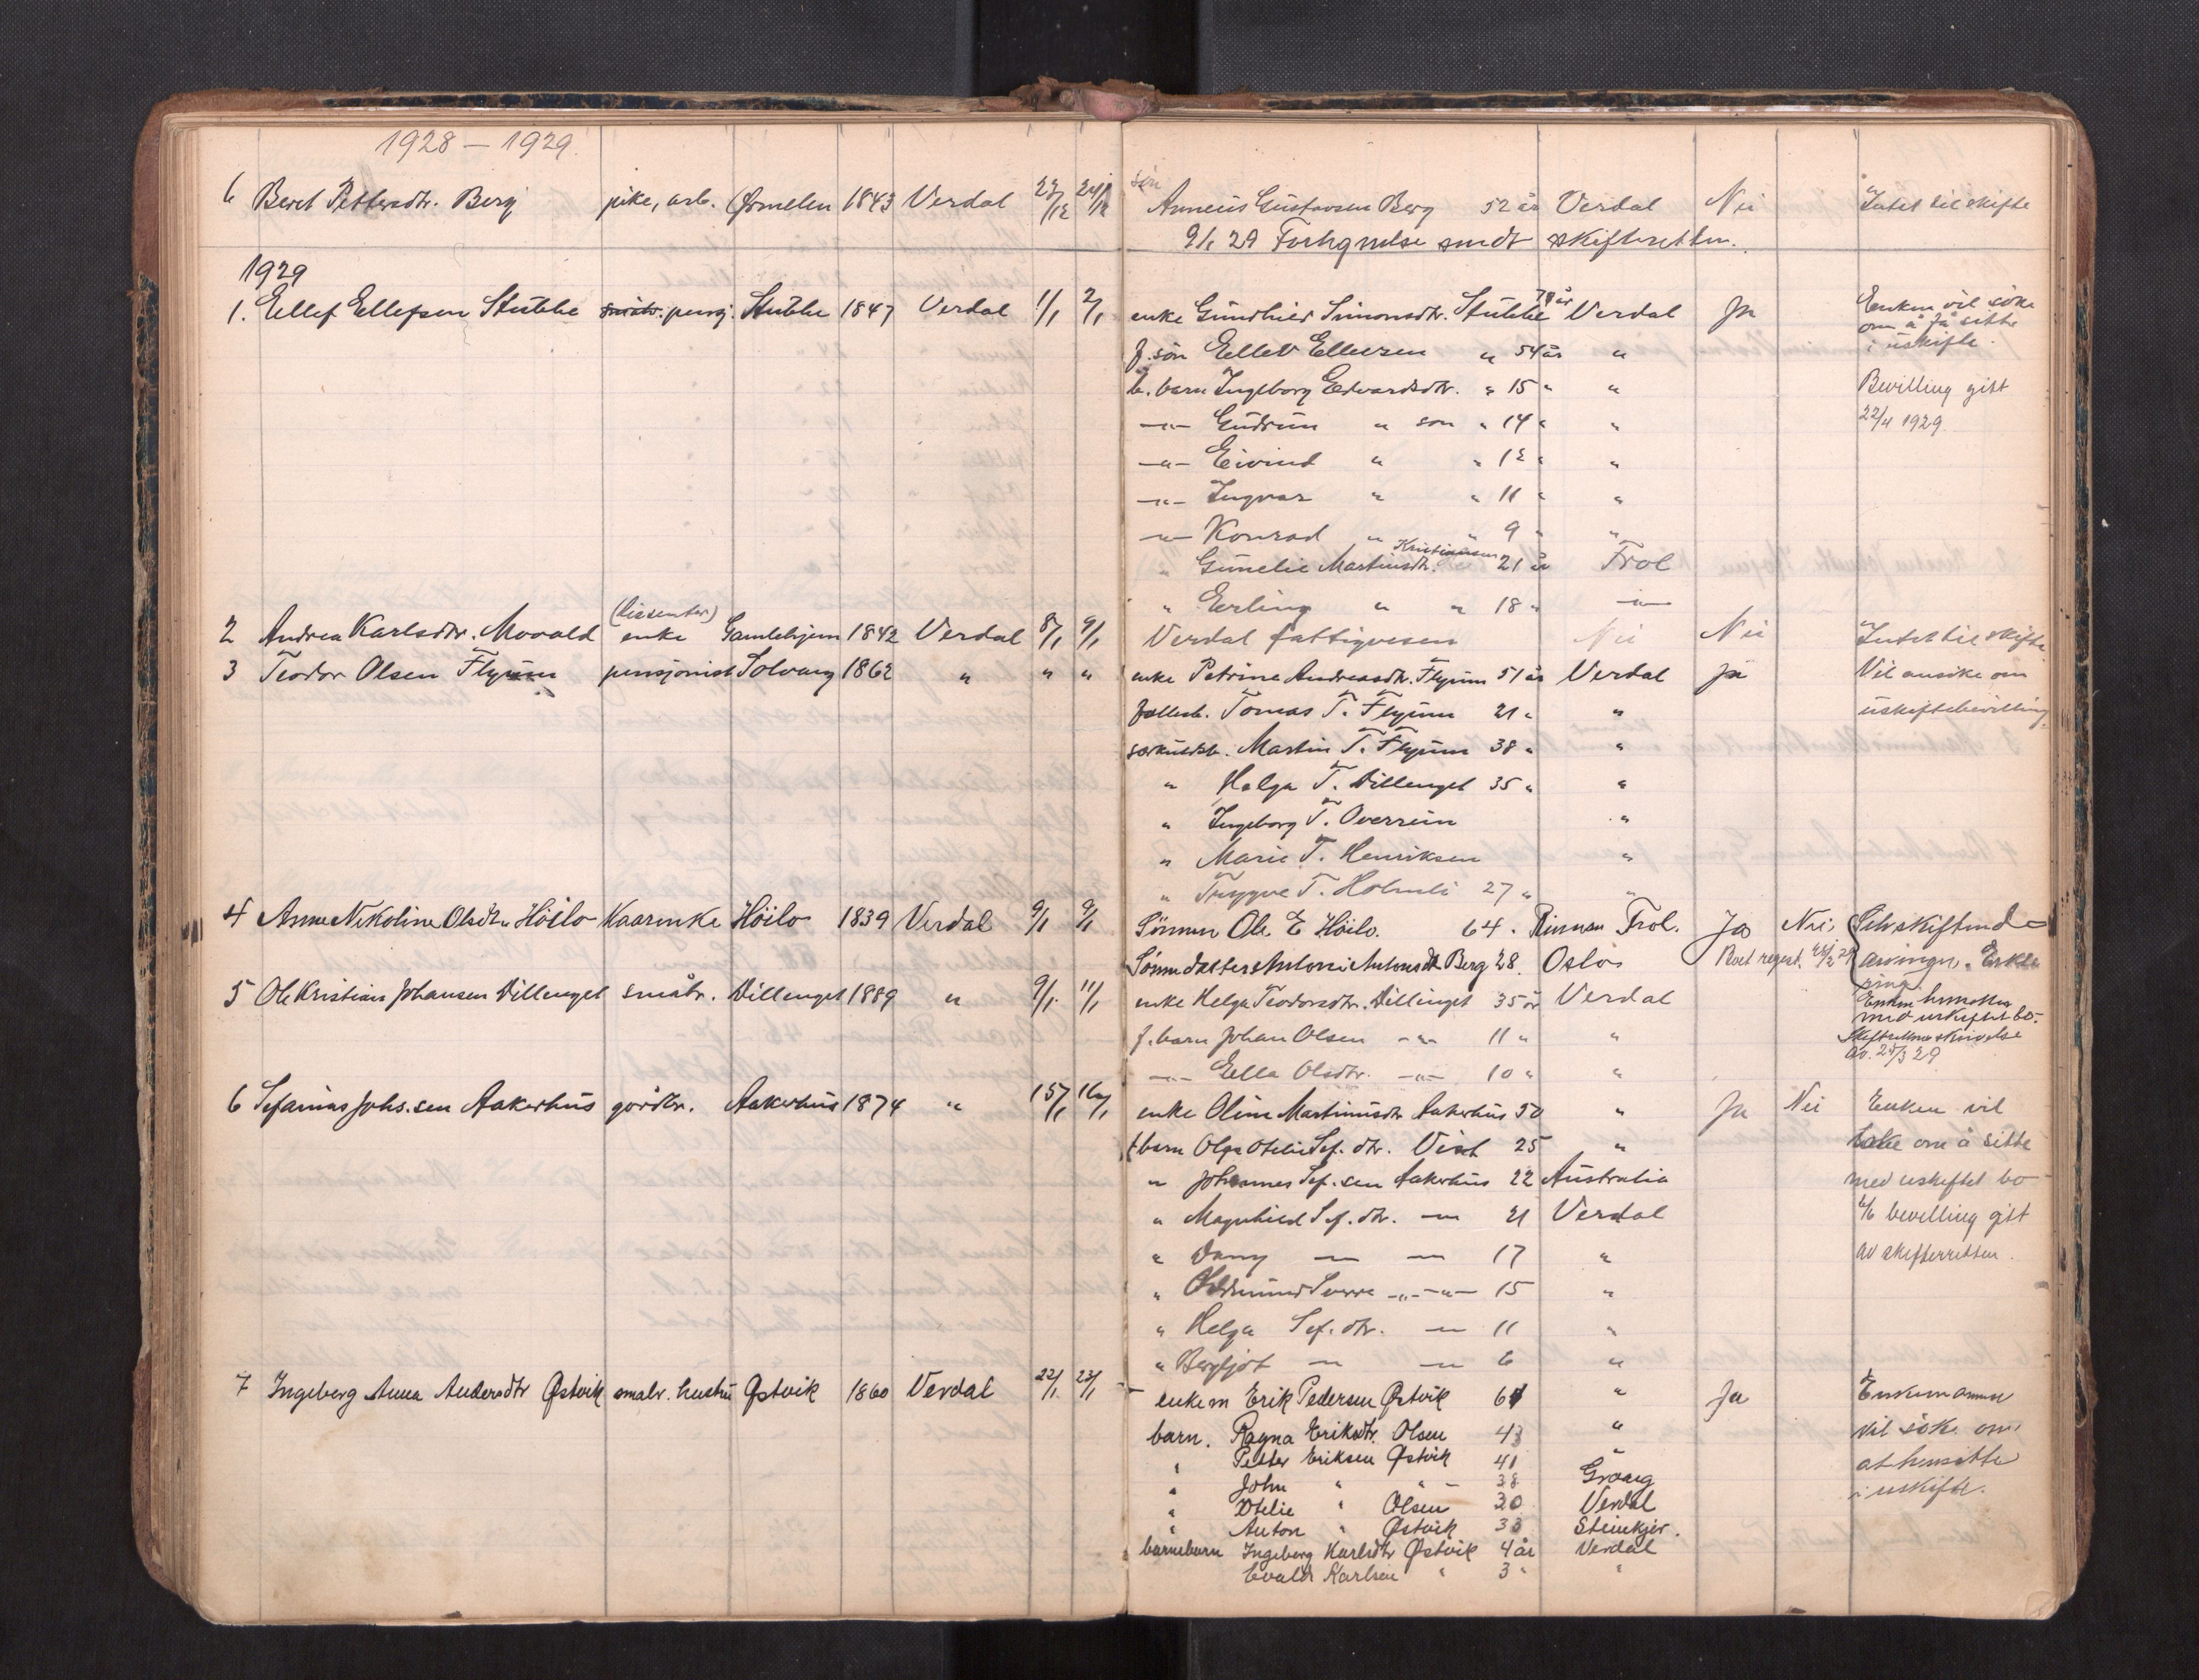 1928 – 1929.
6 Beret Pettersdtr. Berg pike, arb. Ørmelen 1843 Verdal 23/12 24/12 sön Anneus Gustavsen Berg 52 år Verdal Nei Intet til skifte
9/1 29 sendt skifteretten.
1929
1. Ellef Ellefsen Stubbe småbr. pensj. Stubbe 1847 Verdal 1/1 2/1 enke Gunhild Simonsdtr. Stubbe 74 år Verdal Ja Enken vil söke
om å få sitte
i uskifte.
f. sön Ellev Ellevsen " 54 år "
b. barn Ingeborg Edvardsdtr. " 15 " " Bevilling gitt
—"— Gudrun " sen " 14 " " 22/4 1929.
—"— Eivind " " 12 " "
—"— Ingvar " " 11 " "
—"— Konrad " " 9 " "
" Gunelie Martinsdtr. Kristiansen 21 år Frol
" Erling " " 18 " —"—
2 Andrea Karlsdtr. Movald (dissenter) enke Gamlehjem 1842 Verdal 8/1 9/1 Verdal fattigvesen Nei Nei Intet til skifte
3 Teodor Olsen Flyum pensjonist Solvang 1862 " " " enke Petrine Andreasdtr. Flyum 51 år Verdal Ja Vil ansöke om
fellesb. Tomas T. Flyum 21 " " uskiftebevilling.
særkuldsb. Martin T. Flyum 38 " "
" Helga T. Dillenget 35 " "
" Ingeborg T. Overrein "
" Marie T. Henriksen "
" Tryggve T. Holmli 27 " "
4 Anne Nikoline Olsdtr Höilo Kaarenke Höilo 1839 Verdal 9/1 9/1 Sönnen Ole E Höilo. 64. Rinnan Frol. Ja Nei. Selvskiftende
Sönnedatter Antonie Antonsdtr Berg 28. Oslo Boet regist. arvinger.
5 Ole Kristian Johansen Dillenget småbr. Dillenget 1889 " 9/1. 11/1 enke Helga Teodorsdtr. Dillenget 35 år Verdal Enken hensitter
med uskiftet bo.
f. barn Johan Olsen —"— 11 " " Skifterettens skrivelse
av. 25/3 29
—"— Ella Olsdtr. —"— 10 " "
6 Sefanias Johs.sen Aakerhus gårdbr. Aakerhus 1874 " 15/1 16/1 enke Oline Martinusdtr Aakerhus 50 " Ja Nei Enken vil
f barn Olga Otelie Sef. dtr. Vist 25 " söke om å sitte
" Johannes Sef. sen Aakerhus 22 Australia med uskiftet bo
" Magnhild Sef. dtr. —"— 21 Verdal bevilling gitt
" Dany —"— —"— 17 " av skifteretten.
" Oddmund Sverre —"— —"— 15 "
" Helga Sef. dtr. —"— 11 "
" Bergljot —"— —"— 6 "
7 Ingeborg Anna Andersdtr Østvik småbr. hustru Østvik 1860 Verdal 22/1 23/1 enkem Erik Pedersen Østvik 61 " Ja Enkemannen
barn. Ragna Eriksdtr. Olsen 43 " vil söke om
" Petter Eriksen Østvik 41 " at hensitte
" John " " – 38 Grong i uskifte.
" Otelie " Olsen 30 Verdal
" Anton " Østvik 33 Steinkjer.
barnebarn Ingeborg Karlsdtr Østvik 4 år Verdal
Evald Karlsen " 3 " "